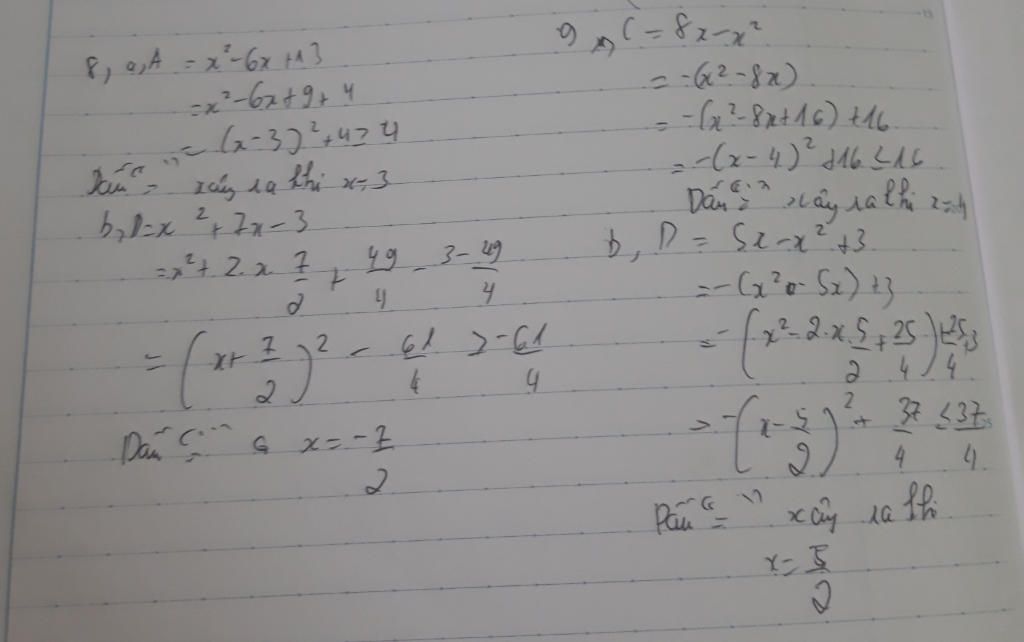 8, a, A = x² - 6x + 13
= x² - 6x + 9 + 4
= (x - 3)² + 4 ≥ 4
Dấu "=" xảy ra khi x = 3
b, D = x² + 7x - 3
= x² + 2.x 7/2 + 49/4 - 3 - 49/4
= (x + 7/2)² - 61/4 ≥ -61/4
Dấu "=" x = -7/2
9 a, C = 8x - x²
= -(x² - 8x)
= -(x² - 8x + 16) + 16
= -(x - 4)² + 16 ≤ 16
Dấu "=" xảy ra khi x = 4
b, D = 5x - x² + 3
= -(x² - 5x) + 3
= -(x² - 2.x.5/2 + 25/4) + 25/4 + 3
= -(x - 5/2)² + 37/4 ≤ 37/4
Dấu "=" xảy ra khi
x = 5/2